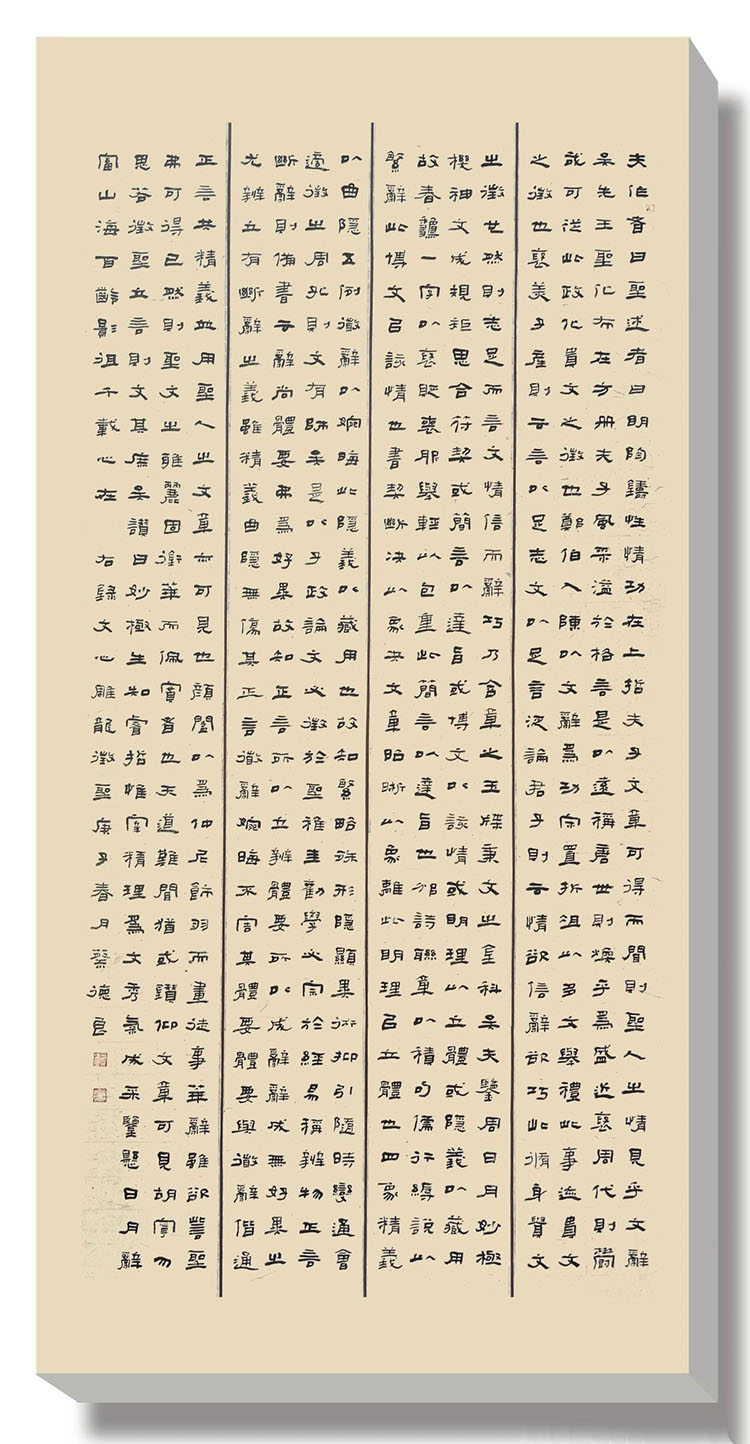 夫作者曰聖述者曰明陶鑄性情功在上哲夫子文章可得而聞則聖人之情見乎文辭
矣先王聖化布在方册夫子風采溢於格言是以遠稱唐世則煥乎爲盛近褒周代則鬱
哉可從此政化貴文之徵也鄭伯入陳以文辭爲功宋置折俎以多文舉禮此事迹貴文
之徵也褒美子產則云言以足志文以足言泛論君子則云情欲信辭欲巧此脩身貴文
之徵也然則志足而言文情信而辭巧乃含章之玉牒秉文之金科矣夫鑒周日月妙極
機神文成規矩思合符契或簡言以達旨或博文以該情或明理以立體或隱義以藏用
故春龝一字以褒貶喪服舉輕以包重此簡言以達旨也邠詩聯章以積句儒行縟説以
繁辭此博文以該情也書契斷決以象夬文章昭晰以象離此明理以立體也四象精義
以曲隱五例微辭以婉晦此隱義以藏用也故知繁略殊形隱顯異術抑引隨時變通會
適徵之周孔則文有師矣是以子政論文必徵於聖稚圭勸學必宗於經易稱辨物正言
斷辭則備書云辭尚體要弗爲好異故知正言所以立辨體要所以成辭辭成無好異之
尤辨立有斷辭之義雖精義曲隱無傷其正言微辭婉晦不害其體要體要與微辭偕通
正言共精義並用聖人之文章亦可見也顏闔以爲仲尼飾羽而畫徒事華辭雖欲訾聖
弗可得已然則聖文之雅麗固銜華而佩實者也天道難聞猶或鑽仰文章可見胡寧勿
思若徵聖立言則文其庶矣讚曰妙極生知睿哲惟宰精理爲文秀氣成采鑒懸日月辭
富山海百齡影徂千載心在右錄文心雕龍徵聖庚子春月蔡德良